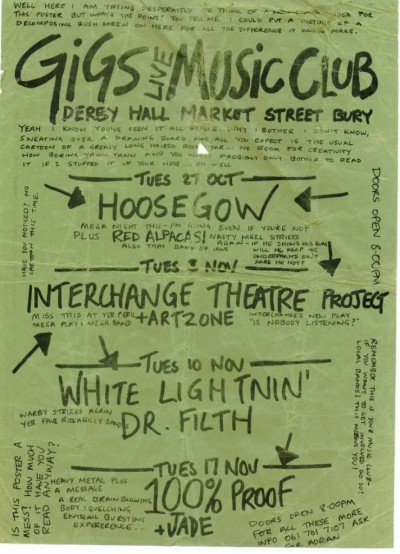 WELL HERE I AM TRYING DESPERATELY TO THINK OF A IDEA FOR
THIS POSTER BUT WHATS THE POINT! YOU TELL ME. I COULD PUT A PICTURE OF A
DECOMPOSING BUSH WREN ON HERE FOR ALL THE DIFFERENCE IT WILL MAKE.
GIGS LIVE MUSIC CLUB
DERBY HALL MARKET STREET BURY
YEAH I KNOW YOUVE SEEN IT ALL BEFORE. WHY I BOTHER I DON'T KNOW,
SWEATING OVER A DRAWING BOARD AND ALL YOU EXPECT IS THE USUAL
CARTOON OF A GREASY LONG HAIRED NO ROOM FOR CREATIVITY
HOW BORING YAWN YAWN AND YOU WONT PROBIBLY ONLY BOTHER TO READ
IT IF I STUFFED IT UP YOUR NOSE... OH WELL
TUES 27 OCT
HOOSEGOW
MEGA NIGHT THIS - I'M GOING EVEN IF YOU'RE NOT
PLUS RED ALPACAS! NASTY NIGEL STRIKES
AGAIN - IF HE
ALSO THAT BAND OF HIS
WILL HE KEEP HIS
HAVE YOU NOTICED? NO
CARTOON THIS TIME.
DOORS OPEN 8.00PM
TUES 3 NOV
INTERCHANGE THEATRE PROJECT
MISS THIS AT YER PERIL
MEGA PLAY! MEGA BAND
+ ARTZONE
INTERCHANGE'S NEW PLAY
"IS NOBODY LISTENING?"
TUES 10 NOV
WHITE LIGHTNIN'
WARBY STRIKES AGAIN
YER FAVE ROCKABILLY BAND
DR. FILTH
REMEMBER THIS IS YOUR MUSIC CLUB-
IF YOU WANT TO GET INVOLVED DO SO!
LOCAL BANDS! THIS MEANS YOU
TUES 17 NOV
IS THIS POSTER A
MESS? HOW MUCH
OF IT HAVE YOU
READ ANYWAY?
HEAVY METAL PLUS
A MESSAGE
A REAL BRAIN BLOWING
BODY SQUELCHING
ENTRAIL BURSTING
EXPERIENCE...
100% PROOF
+ JADE
DOORS OPEN 8.00PM
FOR ALL THESE MORE
INFO 061 761 7107 ASK
FOR ADRIAN